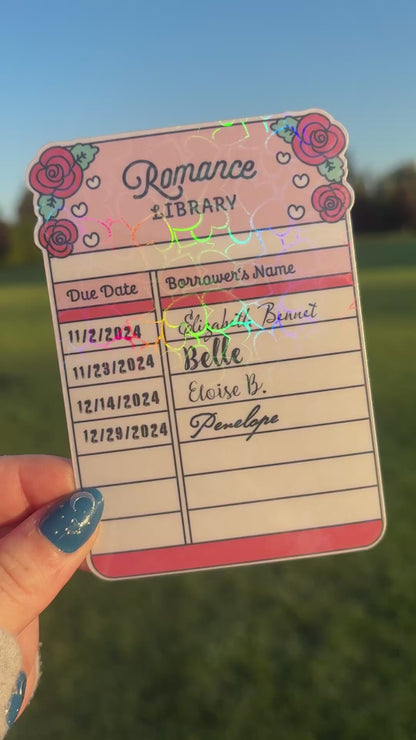 Romance
LIBRARY
Due Date Borrower's Name
11/2/2024 Elizabeth Bennet
11/23/2024 Belle
12/14/2024 Eloise B.
12/29/2024 Penelope